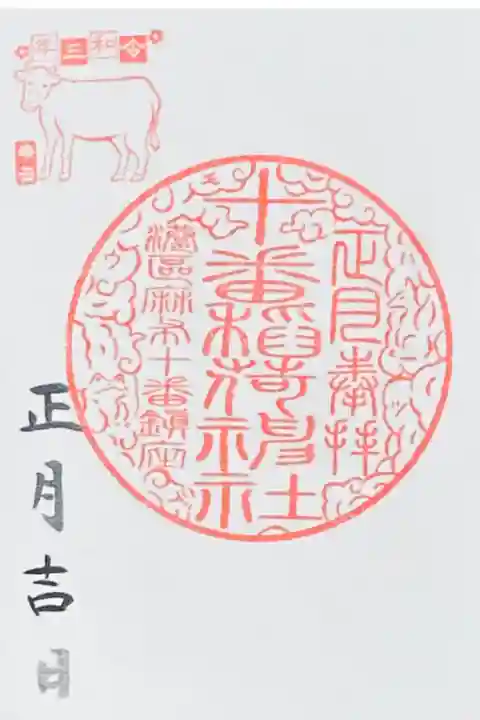 令和三年
正月奉拝
十番稲荷神社
港區麻布十番鎮座
正月吉日